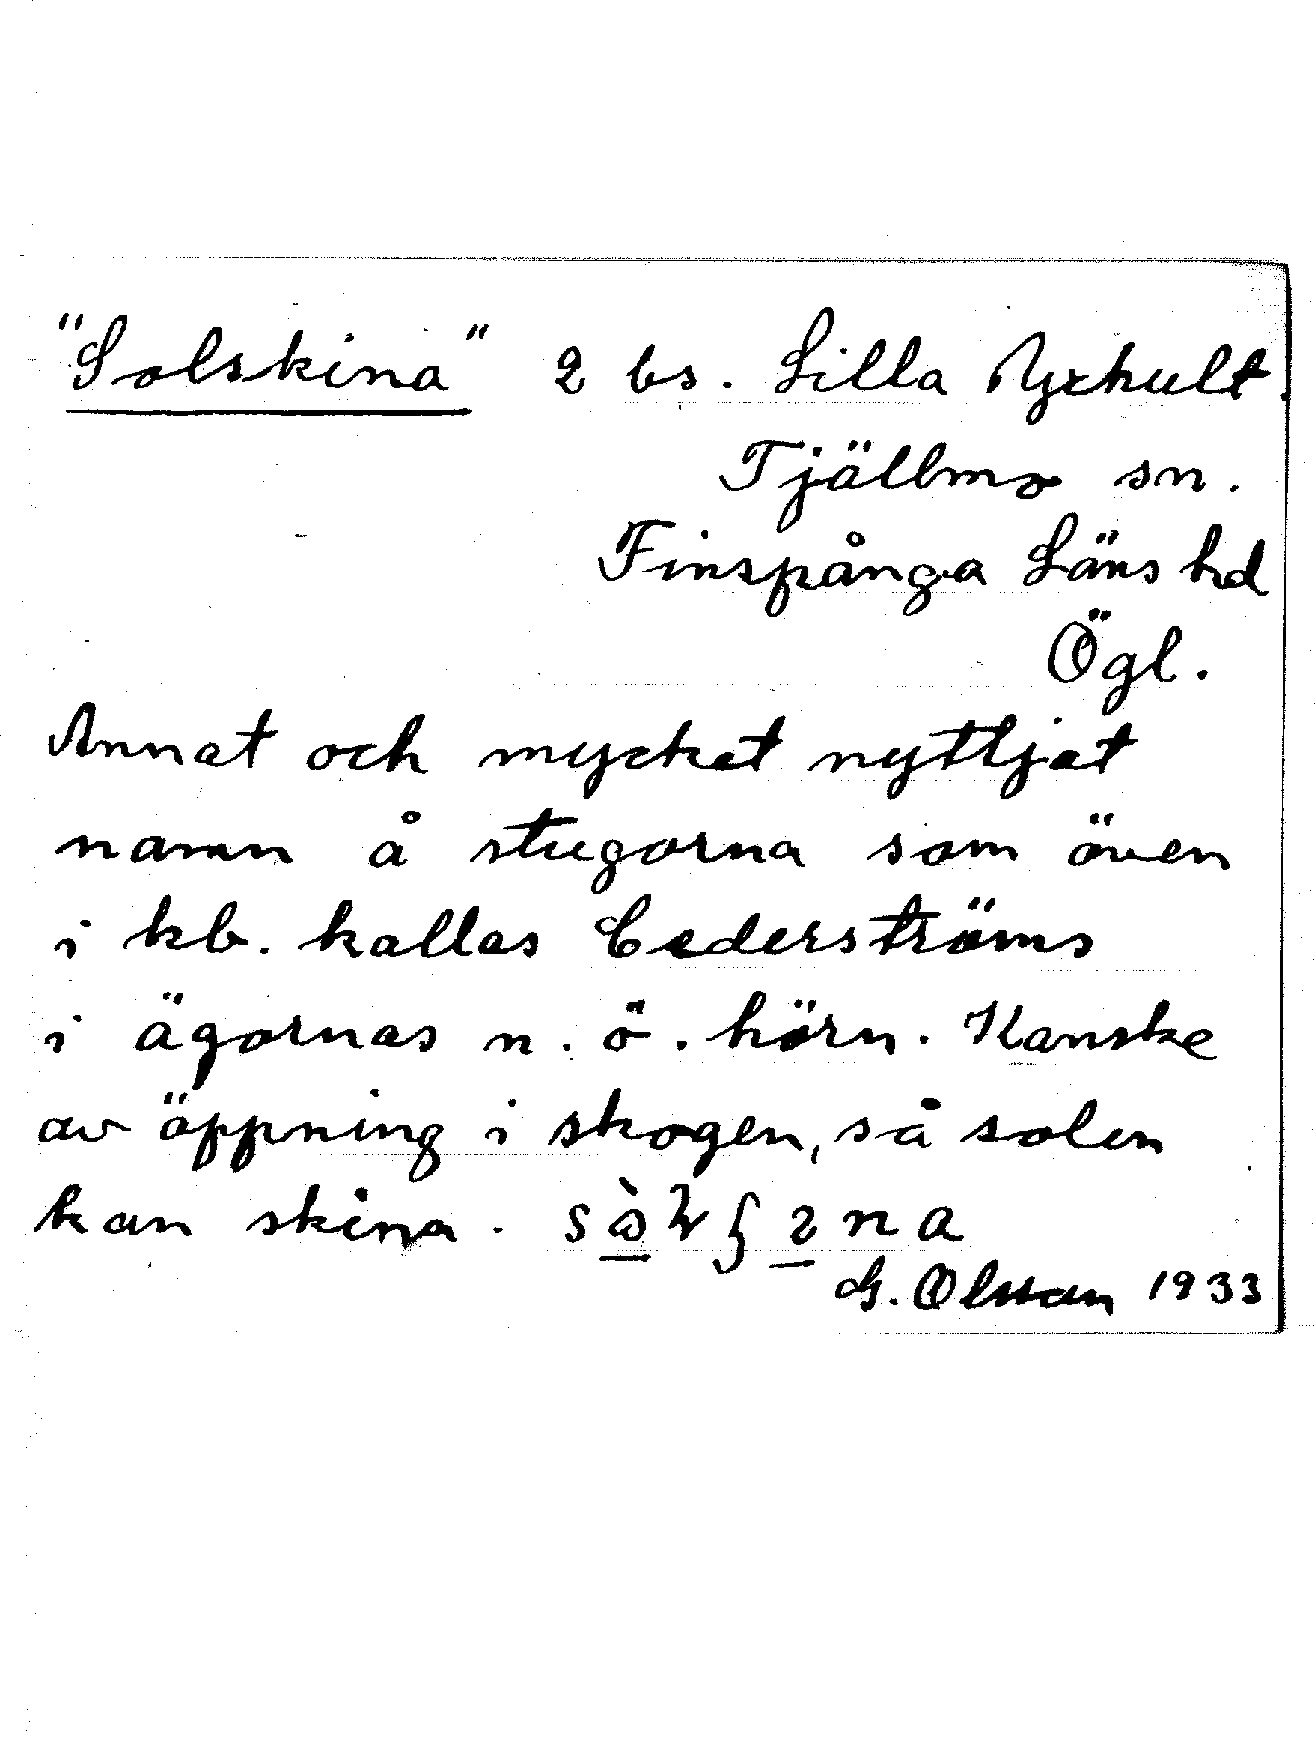 "Solskina" 2 bs. Lilla Yxhult.
Tjällmo sn.
Finspånga Läns hd
Ögl.
Annat och mycket nyttjat
namn å stugorna som även
i kb. kallas Cederströms
i ägornas n. ö. hörn. Kanske
av öppning i skogen, så solen
kan skina.
G. Olsson 1933